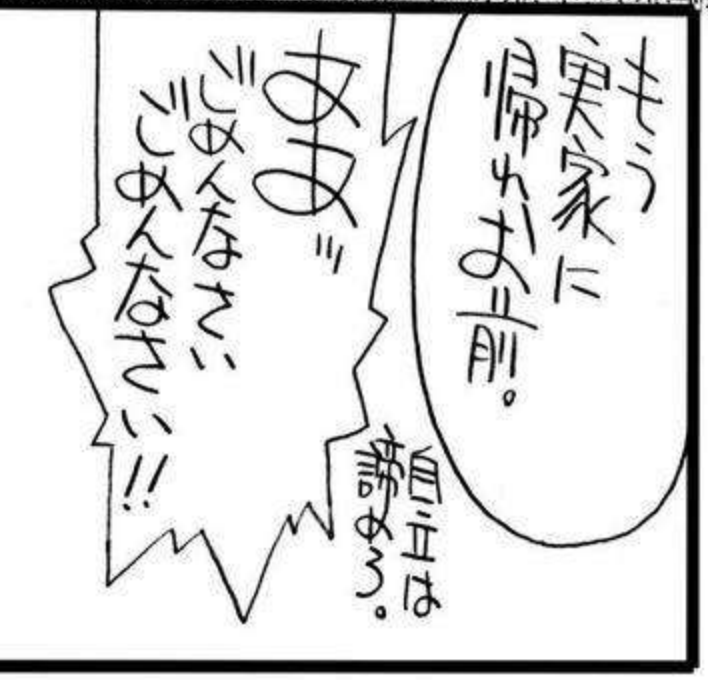 もう
実家に
帰れお前。
自立は
諦めろ。
ああッ
ごめんなさい
ごめんなさい!!